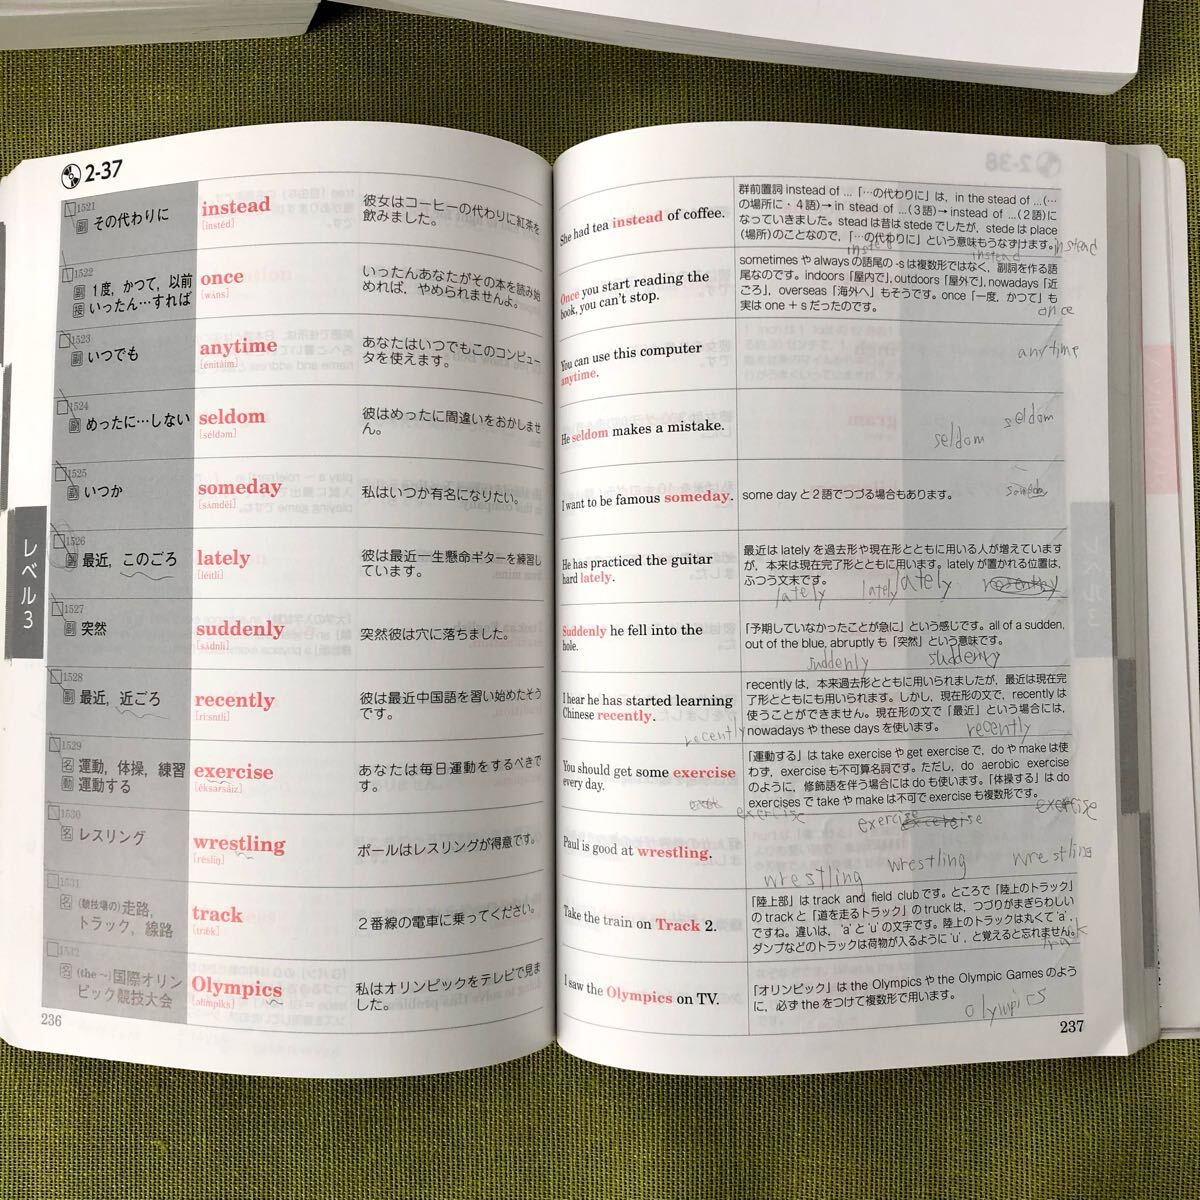 2-37
1521
副 その代わりに
instead
[instéd]
彼女はコーヒーの代わりに紅茶を
飲みました。
1522
副 1度，かつて，以前
接 いったん…すれば
once
[wʌ́ns]
いったんあなたがその本を読み始
めれば，やめられませんよ。
1523
副 いつでも
anytime
[énitàim]
あなたはいつでもこのコンピュー
タを使えます。
1524
副 めったに…しない
seldom
[séldəm]
彼はめったに間違いをおかしませ
ん。
1525
副 いつか
someday
[sʌ́mdèi]
私はいつか有名になりたい。
レベル3
1526
副 最近，このごろ
lately
[léitli]
彼は最近一生懸命ギターを練習し
ています。
1527
副 突然
suddenly
[sʌ́dnli]
突然彼は穴に落ちました。
1528
副 最近，近ごろ
recently
[ríːsntli]
彼は最近中国語を習い始めたそう
です。
1529
名 運動，体操，練習
動 運動する
exercise
[éksərsàiz]
あなたは毎日運動をするべきで
す。
1530
名 レスリング
wrestling
[résliŋ]
ポールはレスリングが得意です。
1531
名 (競技場の)走路，
トラック，線路
track
[trǽk]
2番線の電車に乗ってください。
1532
名 (the ~)国際オリン
ピック競技大会
Olympics
[əlímpiks]
私はオリンピックをテレビで見ま
した。
236
She had tea instead of coffee.
群前置詞 instead of ...「…の代わりに」は，in the stead of ...(…
の場所に・4語)→in stead of ...(3語)→instead of ...(2語)に
なっていきました。steadは昔はstedeでしたが，stedeはplace
(場所)のことなので，「…の代わりに」という意味もうなずけます。
instead
instead
instead
Once you start reading the
book, you can't stop.
sometimesやalwaysの語尾の-sは複数形ではなく，副詞を作る語
尾なのです。indoors「屋内で」, outdoors「屋外で」, nowadays「近
ごろ」, overseas「海外へ」もそうです。once「一度，かつて」も
実はone＋sだったのです。
once
You can use this computer
anytime.
anytime
He seldom makes a mistake.
seldom
seldom
I want to be famous someday.
some dayと2語でつづる場合もあります。
someday
He has practiced the guitar
hard lately.
最近はlatelyを過去形や現在形とともに用いる人が増えています
が，本来は現在完了形とともに用います。latelyが置かれる位置は，
ふつう文末です。
lately
lately
lately
Suddenly he fell into the
hole.
「予期していなかったことが急に」という感じです。all of a sudden,
out of the blue, abruptlyも「突然」という意味です。
suddenly
suddenly
I hear he has started learning
Chinese recently.
recentlyは，本来過去形とともに用いられましたが，最近は現在完
了形とともにも用いられます。しかし，現在形の文で，recentlyは
使うことができません。現在形の文で「最近」という場合には，
nowadaysやthese daysを使います。
recently
recently
You should get some exercise
every day.
「運動する」はtake exerciseやget exerciseで，doやmakeは使
わず，exerciseも不可算名詞です。ただし，do aerobic exercise
のように，修飾語を伴う場合にはdoも使います。「体操する」はdo
exercisesでtakeやmakeは不可でexerciseも複数形です。
exercise
exercise
exercise
Paul is good at wrestling.
wrestling
wrestling
wrestling
Take the train on Track 2.
「陸上部」はtrack and field clubです。ところで「陸上のトラック」
のtrackと「道を走るトラック」のtruckは，つづりがまぎらわしい
ですね。違いは，'a'と'u'の文字です。陸上のトラックは丸くて'a'，
ダンプなどのトラックは荷物が入るように'u'，と覚えると忘れません。
I saw the Olympics on TV.
「オリンピック」はthe Olympicsやthe Olympic Gamesのよう
に，必ずtheをつけて複数形で用います。
olympics
237